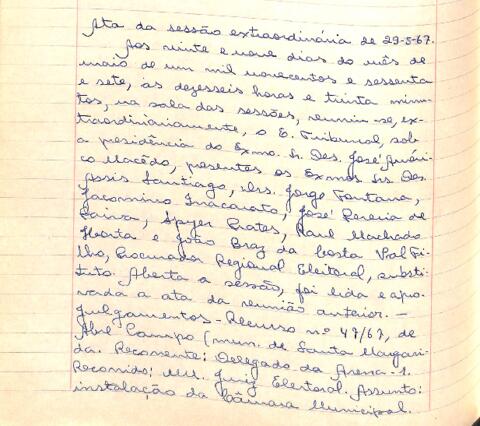 Ata da sessão extraordinária de 29-5-67.
Aos vinte e nove dias do mês de
maio de um mil novecentos e sessenta
e sete, às dezesseis horas e trinta minu-
tos, na sala das sessões, reuniu-se, ex-
traordinariamente, o E. Tribunal, sob
a presidência do Exmo. Sr. Des. José Améri-
co Macêdo, presentes os Exmos Srs. Des.
Assis Santiago, drs. Jorge Fontana,
Jacomino Inacarato, José Pereira de
Paiva, Spyer Prates, Raul Machado
Horta e João Braz da Costa Val Fi-
lho, Procurador Regional Eleitoral, substi-
tuto. Aberta a sessão, foi lida e apro-
vada a ata da reunião anterior. —
Julgamentos - Recurso nº 47/67, de
Abre Campo (mun. de Santa Margari-
da. Recorrente: Delegado da Arena-1.
Recorrido: MM. Juiz Eleitoral. Assunto:
instalação da Câmara Municipal.